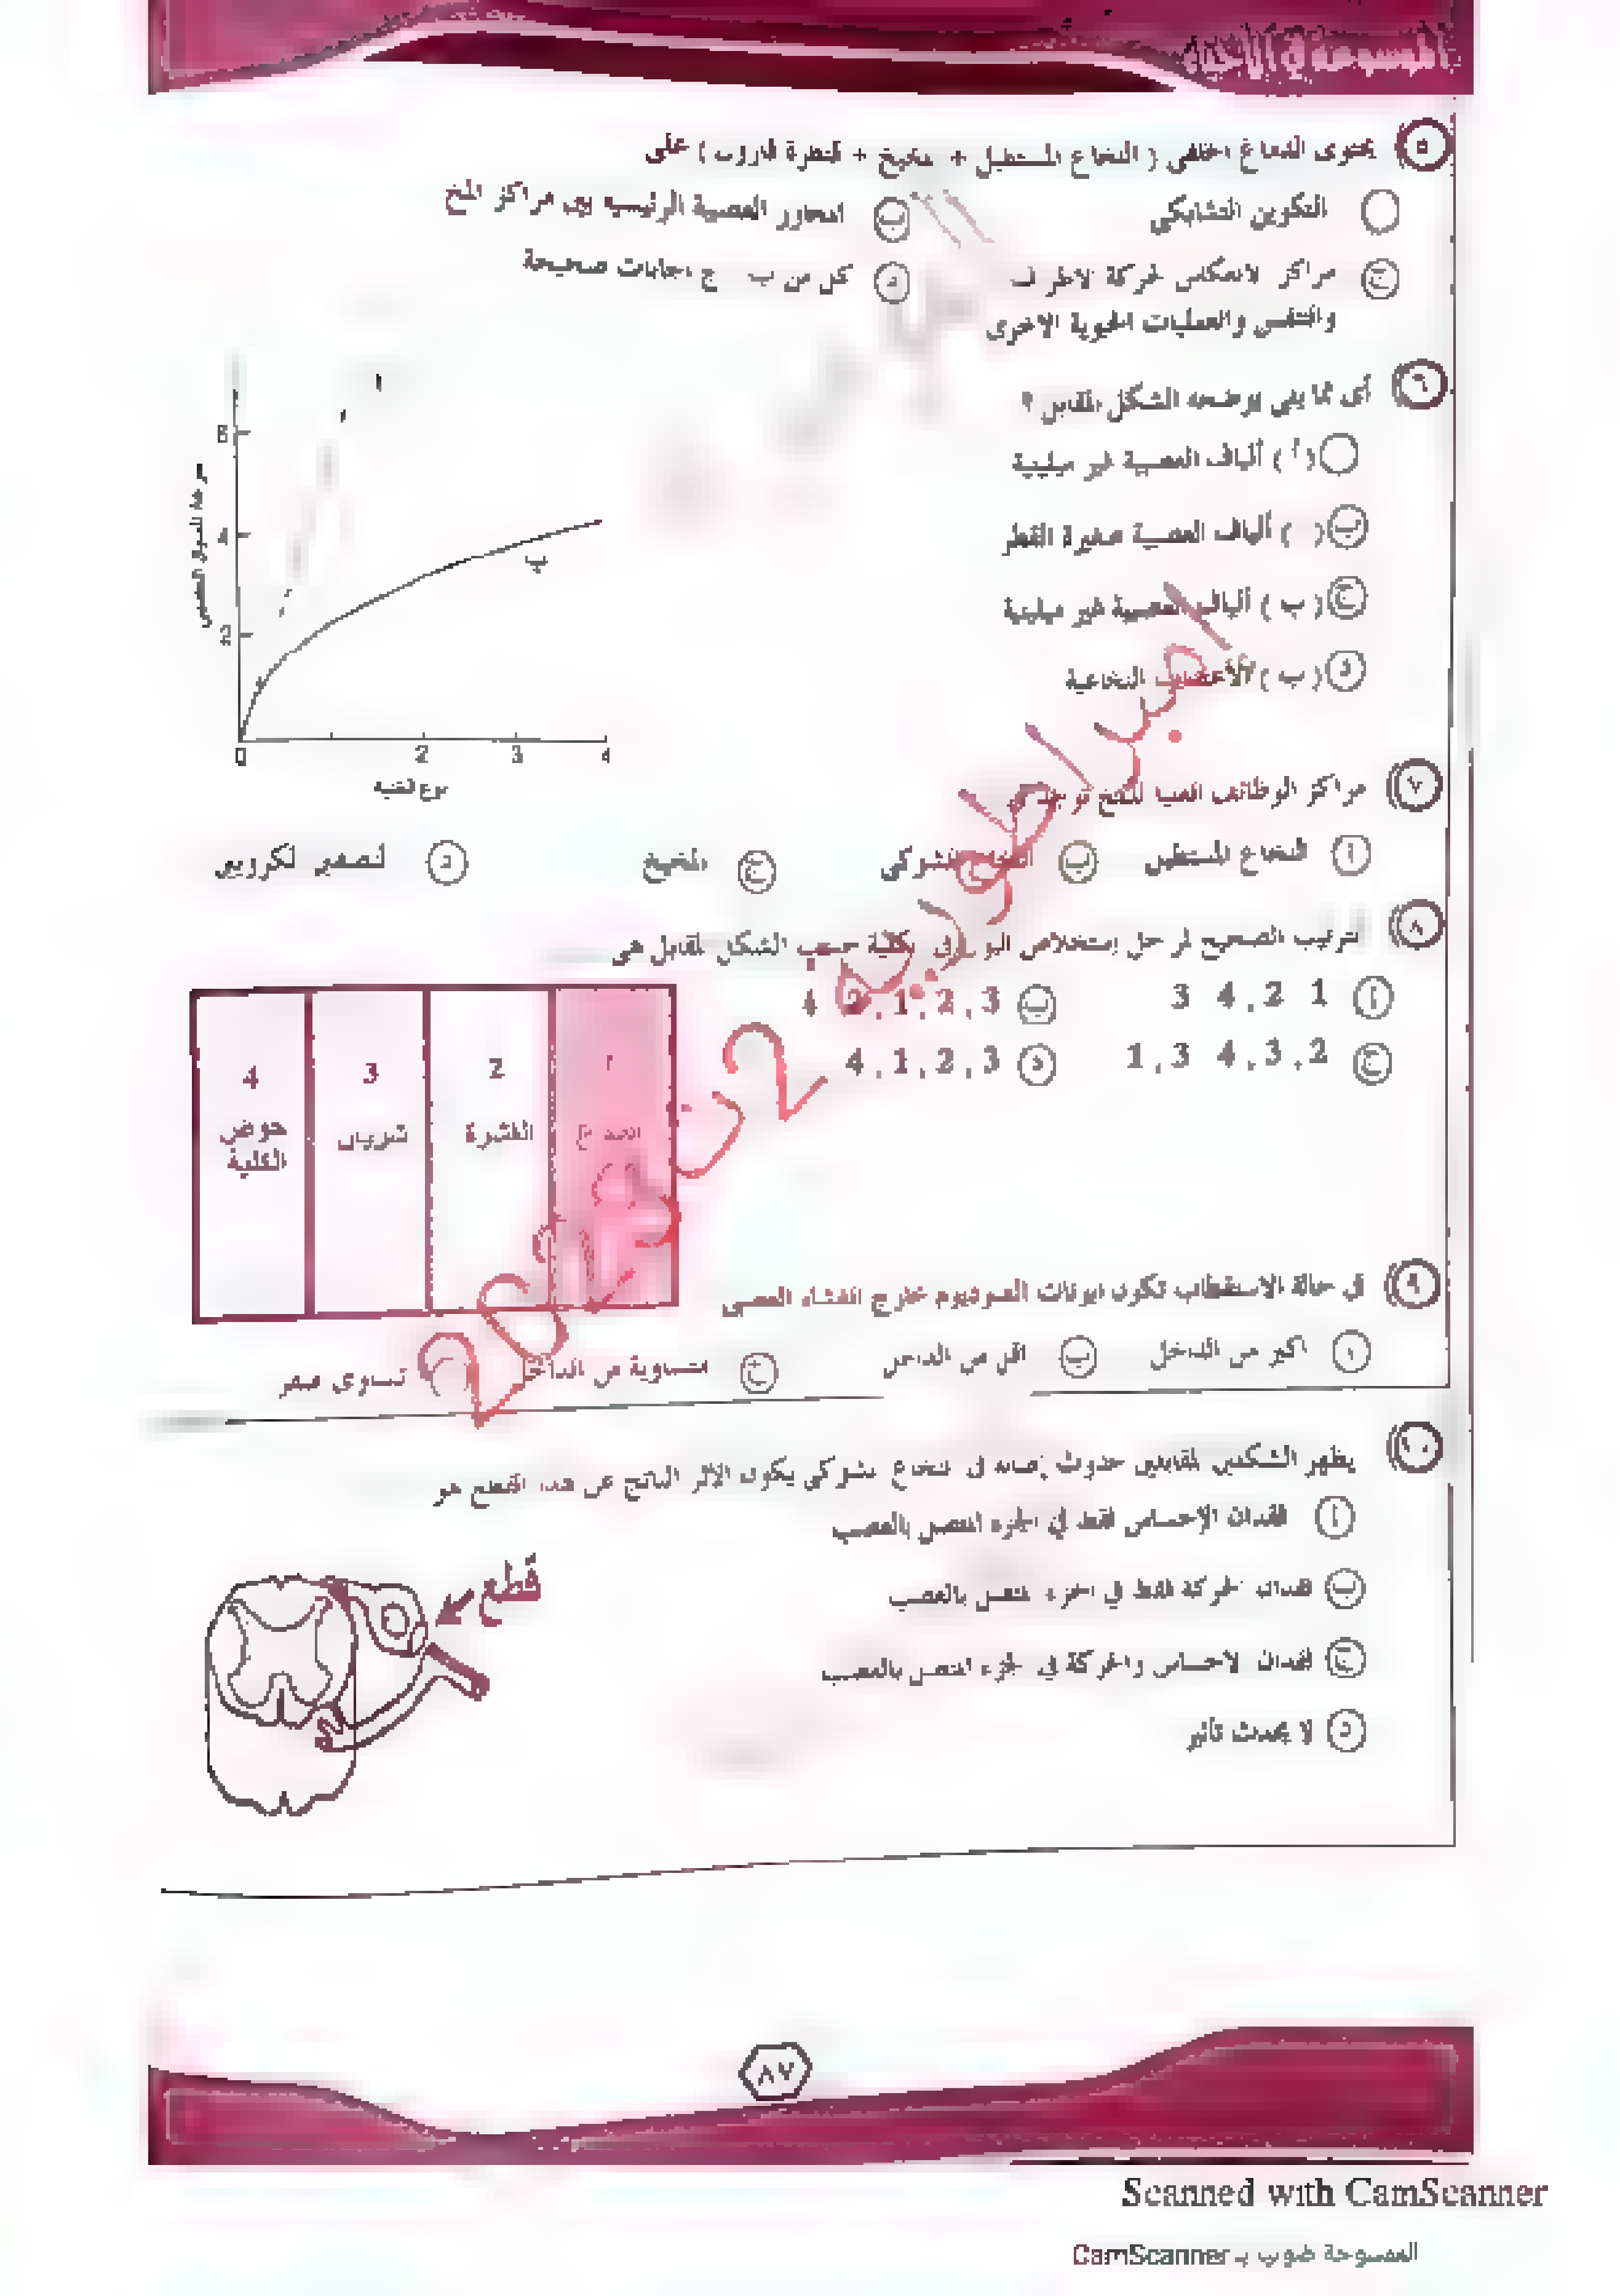 الموسوعة في الأحياء
٥ يحتوى الدماغ الخلفى ( النخاع المستطيل + المخيخ + قنطرة فارول ) على
التكوين التشابكى
ب المحاور العصبية الرئيسية بين مراكز المخ
ج مراكز الانعكاس لحركة الاطراف
والتنفس والعمليات الحيوية الاخرى
د كل من ب ج اجابات صحيحة
٦ أى مما يلى يوضحه الشكل المقابل ؟
( أ ) ألياف العصبية غير ميلينية
ب ( ) ألياف العصبية صغيرة القطر
ج ( ب ) ألياف العصبية غير ميلينية
د ( ب ) الأعصاب النخاعية
سرعة السيال العصبى
6
4
2
0 2 3 4
ب
٧ مراكز الوظائف العليا للمخ توجد فى
أ النخاع المستطيل
ب الشوكى
ج المخيخ
د
٨ الترتيب الصحيح لمراحل إستخلاص البول فى الكلية حسب الشكل المقابل هى
أ 1 2 , 4 3
ب 3 , 2 , 1 , 2 4
ج 2 , 3 , 4 3 , 1
د 3 , 2 , 1 , 4
1
2 القشرة
3 شريان
4 حوض الكلية
٩ فى حالة الاستقطاب تكون ايونات الصوديوم خارج الغشاء العصبى
أ اكبر من الداخل
ب اقل من الداخل
ج متساوية من الداخل
تساوى صفر
١٠ يظهر الشكلين المقابلين حدوث إصابة فى النخاع الشوكى يكون الاثر الناتج عن هذا القطع هو
أ فقدان الإحساس فقط في الجزء المتصل بالعصب
ب فقدان الحركة فقط في الجزء المتصل بالعصب
ج فقدان الاحساس والحركة في الجزء المتصل بالعصب
د لا يحدث تأثير
قطع
٨٧
Scanned with CamScanner
الممسوحة ضوئيا بـ CamScanner